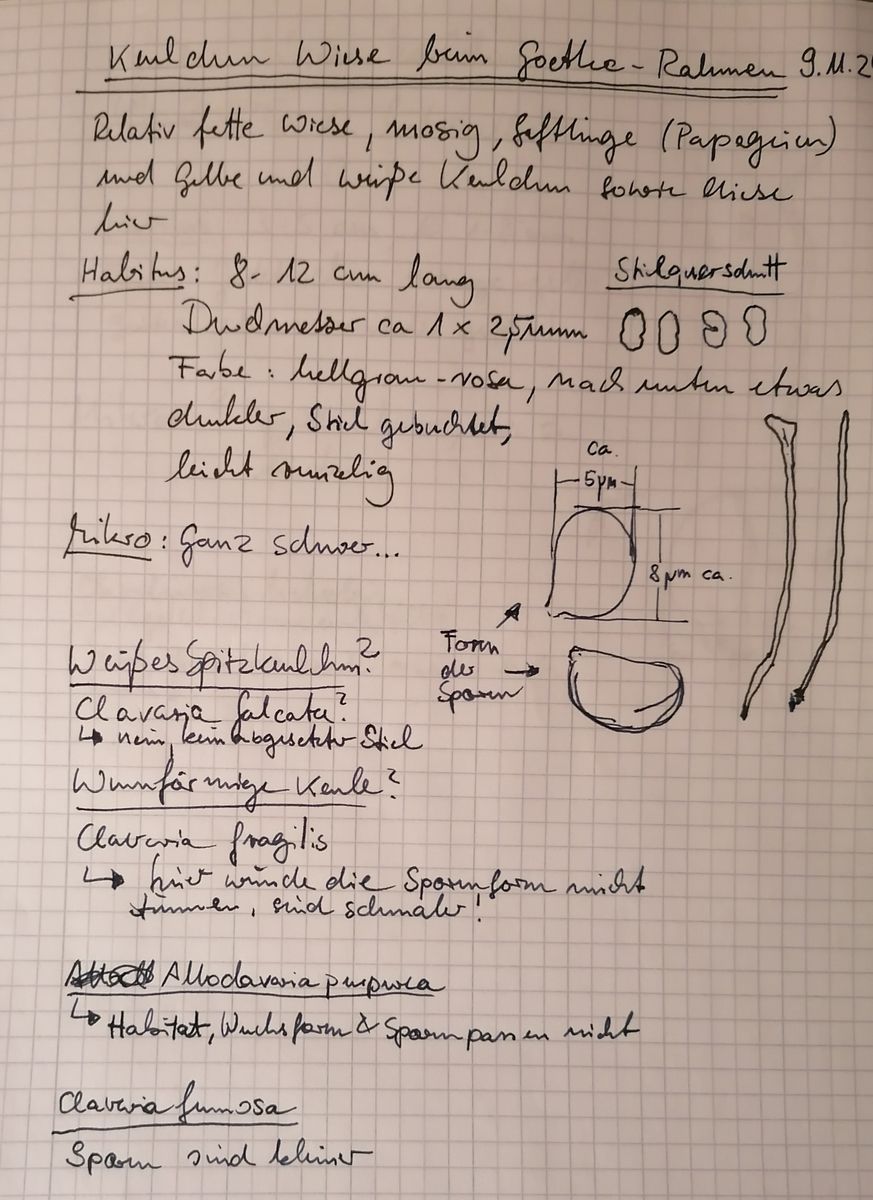 Keulchen Wiese beim Goethe-Rahmen 9.11.2
Relativ fette Wiese, mosig, Saftlinge (Papageien)
und Gelbe und weiße Keulchen sowie diese
hier
Habitus: 8-12 cm lang
Stielquerschnitt
Durchmesser ca 1 x 2,5mm
Farbe: hellgrau-rosa, nach unten etwas
dunkler, Stiel gebuchtet,
leicht runzelig
ca.
5µm
Mikro: Ganz schwer...
8µm ca.
Form
der
Sporen
Weißes Spitzkeulchen?
Clavaria falcata?
↳ nein, kein abgesetzter Stiel
Wurmförmige Keule?
Clavaria fragilis
↳ hier würde die Sporenform nicht
stimmen, sind schmaler!
Alloclavaria purpurea
↳ Habitat, Wuchsform & Sporen passen nicht
Clavaria fumosa
Sporen sind kleiner